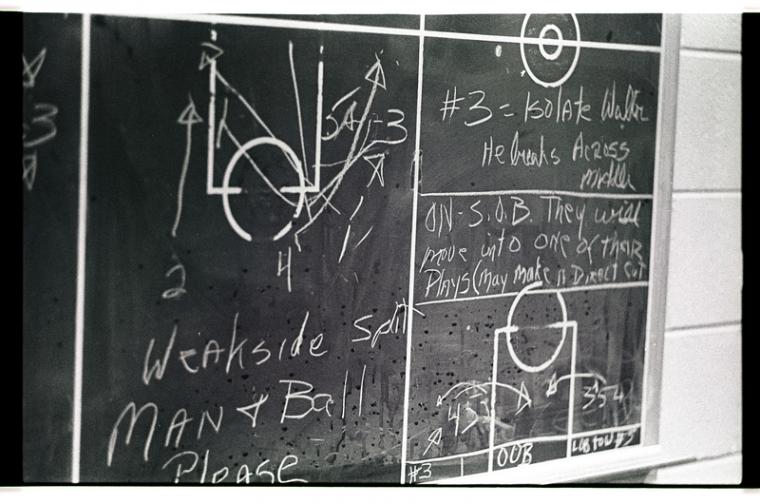 3
5
3
2
4
Weakside Split
MAN & Ball
Please
#3 = Isolate Walter
He breaks Across
middle
ON-S.O.B. They will
move into one of their
Plays (may make a Direct cut
354
#3
OOB